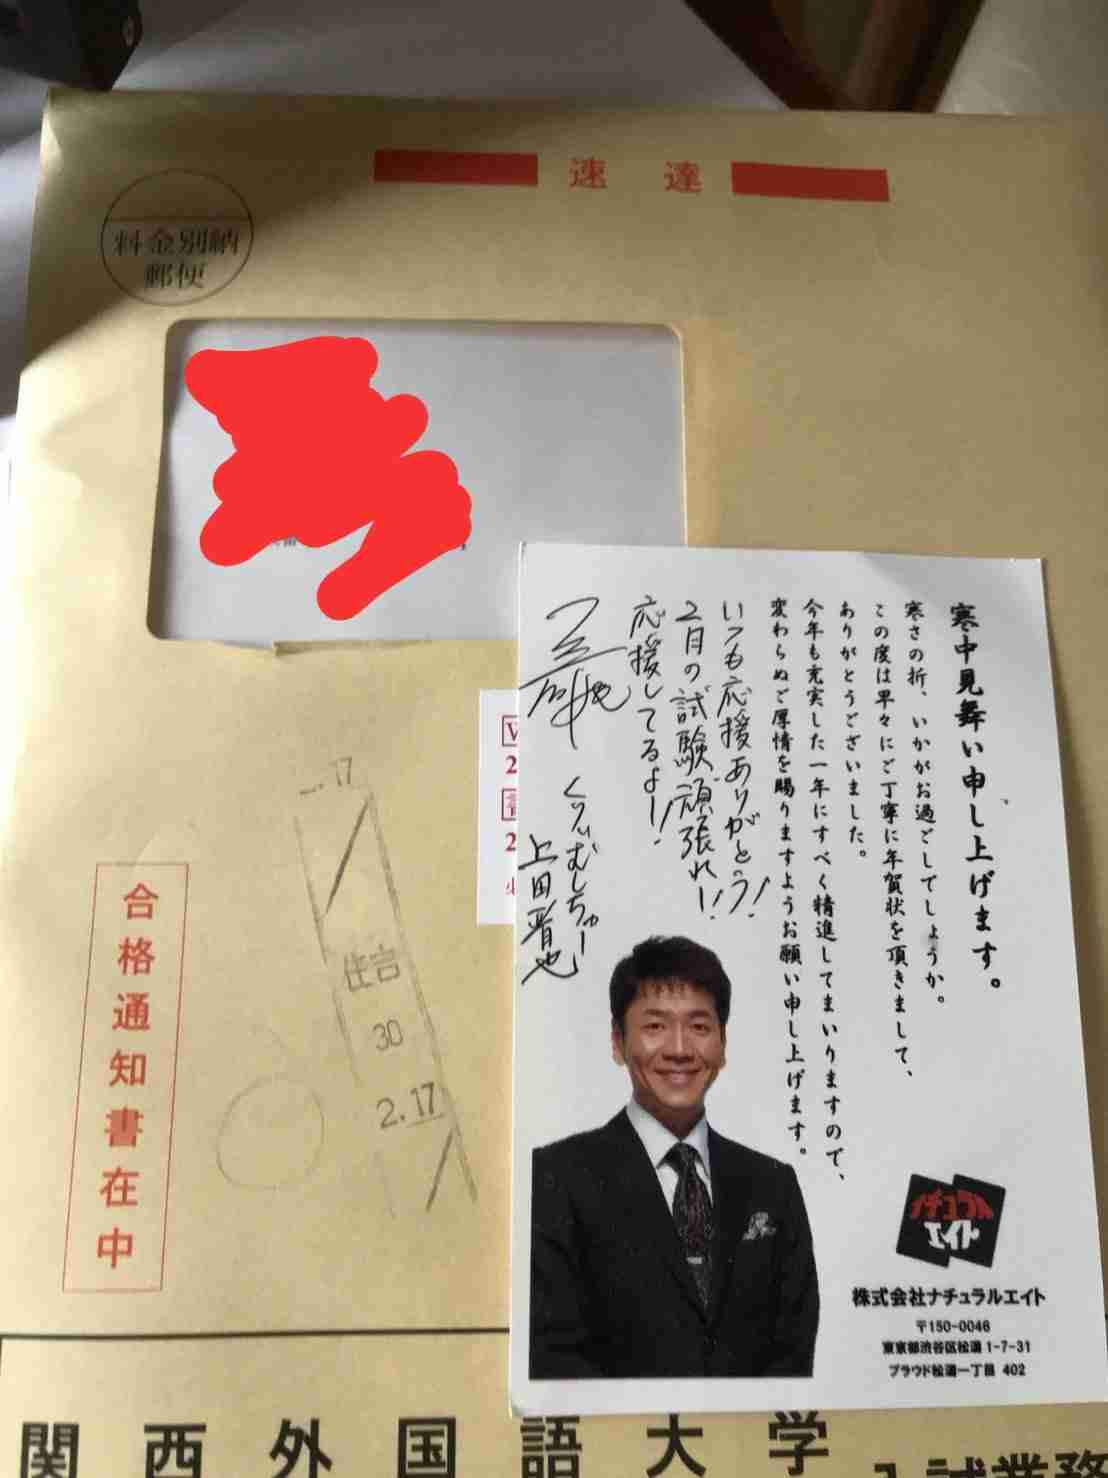 速達
料金別納
郵便
合格通知書在中
2.17
住吉
30
2.17
関西外国語大学
寒中見舞い申し上げます。
寒さの折、いかがお過ごしでしょうか。
この度は早々にご丁寧に年賀状を頂きまして、
ありがとうございました。
今年も充実した一年にすべく精進してまいりますので、
変わらぬご厚情を賜りますようお願い申し上げます。
いつも応援ありがとう!
2月の試験頑張れー!
応援してるよー!
くりぃむしちゅー
上田晋也
ナチュラル
エイト
株式会社ナチュラルエイト
〒150-0046
東京都渋谷区松濤1-7-31
プラウド松濤一丁目 402